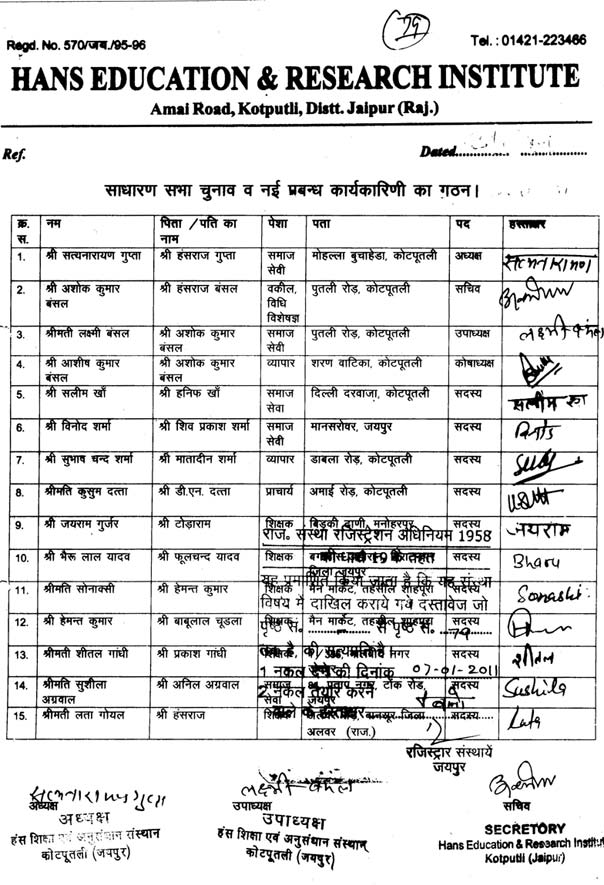 29
Regd. No. 570/जय./95-96 Tel. : 01421-223466
HANS EDUCATION & RESEARCH INSTITUTE
Amai Road, Kotputli, Distt. Jaipur (Raj.)
Ref. Dated
साधारण सभा चुनाव व नई प्रबन्ध कार्यकारिणी का गठन।
क्र. स. नम पिता / पति का नाम पेशा पता पद हस्ताक्षर
1. श्री सत्यनारायण गुप्ता श्री हंसराज गुप्ता समाज सेवी मोहल्ला बुचाहेडा, कोटपूतली अध्यक्ष
2. श्री अशोक कुमार बंसल श्री हंसराज बंसल वकील, विधि विशेषज्ञ पुतली रोड़, कोटपूतली सचिव
3. श्रीमती लक्ष्मी बंसल श्री अशोक कुमार बंसल समाज सेवी पुतली रोड़, कोटपूतली उपाध्यक्ष लक्ष्मी बंसल
4. श्री आशीष कुमार बंसल श्री अशोक कुमार बंसल व्यापार शरण वाटिका, कोटपूतली कोषाध्यक्ष
5. श्री सलीम खाँ श्री हनिफ खाँ समाज सेवा दिल्ली दरवाजा, कोटपूतली सदस्य सलीम खा
6. श्री विनोद शर्मा श्री शिव प्रकाश शर्मा समाज सेवी मानसरोवर, जयपुर सदस्य
7. श्री सुभाष चन्द शर्मा श्री मातादीन शर्मा व्यापार डाबला रोड़, कोटपूतली सदस्य
8. श्रीमति कुसुम दत्ता श्री डी.एन. दत्ता प्राचार्य अमाई रोड़, कोटपूतली सदस्य
9. श्री जयराम गुर्जर श्री टोड़ाराम शिक्षक बिड़की ढाणी, मनोहरपुर सदस्य जयराम
राज. संस्था रजिस्ट्रेशन अधिनियम 1958
10. श्री भैरू लाल यादव श्री फूलचन्द यादव शिक्षक जिला जयपुर सदस्य Bharu
की धारा 19 के तहत
यह प्रमाणित किया जाता है कि यह संस्था
11. श्रीमति सोनाक्सी श्री हेमन्त कुमार शिक्षक मैन मार्केट, तहसील शाहपुरा सदस्य Sonashi
विषय में दाखिल कराये गये दस्तावेज जो
12. श्री हेमन्त कुमार श्री बाबूलाल चूडला शिक्षक मैन मार्केट, तहसील शाहपुरा सदस्य
पृष्ठ सं. से पृष्ठ सं. 79
13. श्रीमती शीतल गांधी श्री प्रकाश गांधी शिक्षक नगर सदस्य शीतल
1 नकल देने की दिनांक 07-01-2011
14. श्रीमति सुशीला अग्रवाल श्री अनिल अग्रवाल समाज सेवा टोंक रोड़, जयपुर सदस्य Sushila
2 नकल तैयार करने
वाले के हस्ताक्षर
15. श्रीमती लता गोयल श्री हंसराज शिक्षक बानसूर जिला अलवर (राज.) सदस्य Lata
रजिस्ट्रार संस्थायें
जयपुर
सत्यनारायण गुप्ता लक्ष्मी बंसल
अध्यक्ष उपाध्यक्ष सचिव
अध्यक्ष उपाध्यक्ष SECRETORY
हंस शिक्षा एवं अनुसंधान संस्थान हंस शिक्षा एवं अनुसंधान संस्थान Hans Education & Research Institut
कोटपूतली (जयपुर) कोटपूतली (जयपुर) Kotputli (Jaipur)